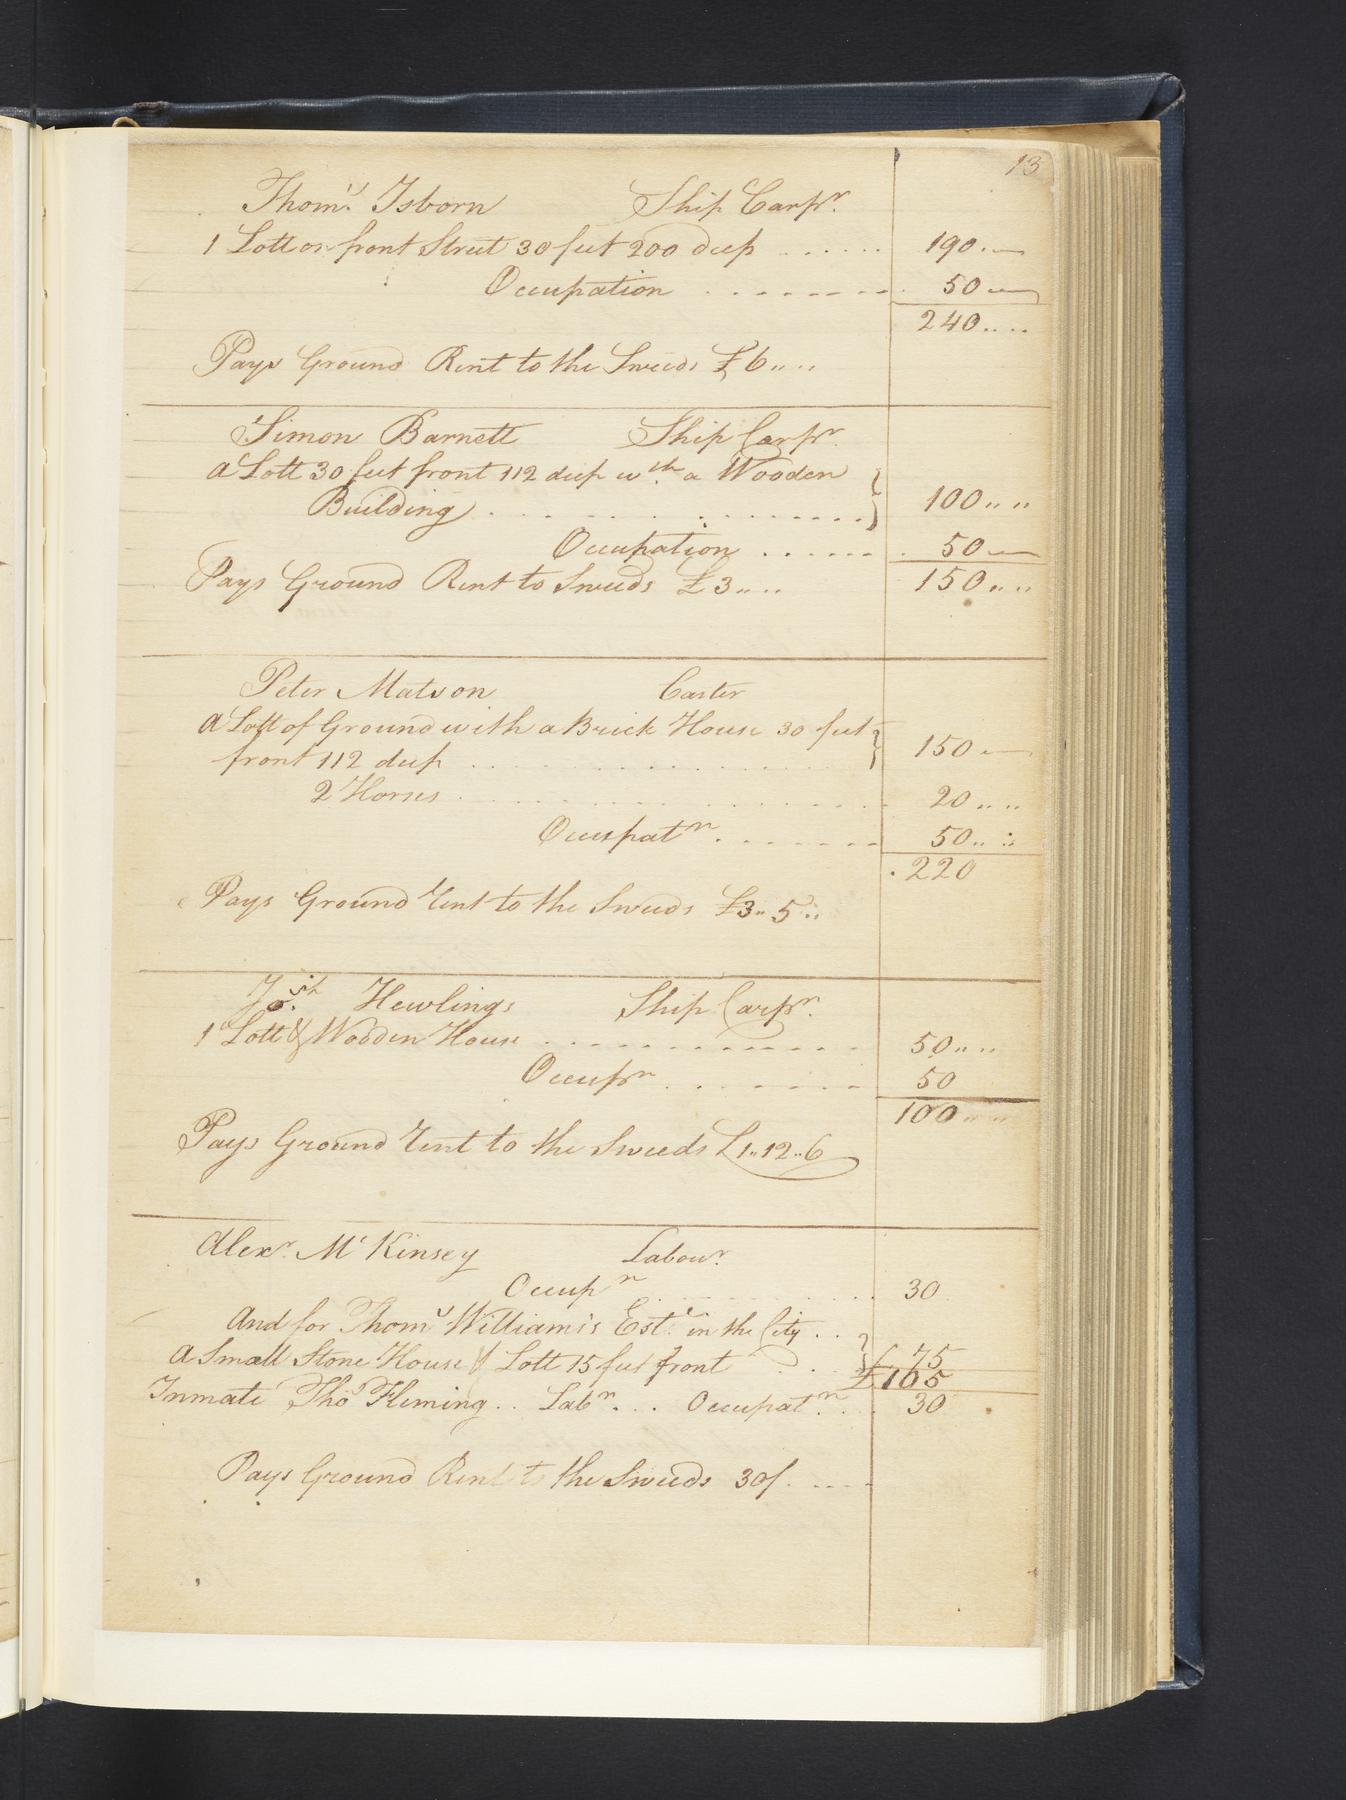 13
Thoms. Isborn Ship Carpr.
1 Lott on front Street 30 feet 200 deep ...... 190..
Occupation ........ 50
240....
Pays Ground Rent to the Sweeds £6....
Simon Barnett Ship Carpr.
a Lott 30 feet front 112 deep wth. a Wooden
Building ............ } 100....
Occupation ...... 50
Pays Ground Rent to Sweeds £3.... 150....
Peter Matson Carter
a Lott of Ground with a Brick House 30 feet
front 112 deep ............ } 150..
2 Horses ............ 20....
Occupatn. ....... 50....
220
Pays Ground Rent to the Sweeds £3..5..
Josh. Hewlings Ship Carpr.
1 Lott & Wooden House ............ 50....
Occupn ....... 50
100....
Pays Ground Rent to the Sweeds £1..12..6
Alexr. McKinsey Labour.
Occupn ........ 30
And for Thoms Williams's Este. in the City ..
a Small Stone House & Lott 15 feet front . . } £75
£105
Inmate Tho Fleming .. Labr. ... Occupatn. .. 30
Pays Ground Rent to the Sweeds 30/. ....